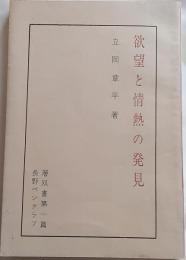 欲望と情熱の発見
立岡章平著
長野ペンクラブ
叢双書第一篇